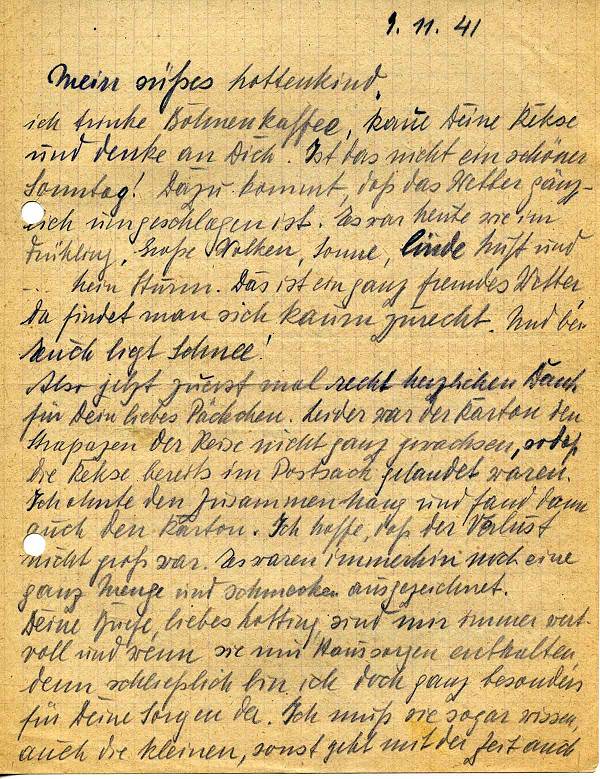 9. 11. 41
Mein süßes Lottenkind,
ich trinke Bohnenkaffee, kaue Deine Kekse
und denke an Dich. Ist das nicht ein schöner
Sonntag! Dazu kommt, daß das Wetter gänz-
lich umgeschlagen ist. Es war heute wie im
Frühling. Große Wolken, Sonne, linde Luft und
... kein Sturm. Das ist ein ganz fremdes Wetter,
da findet man sich kaum zurecht. Und bei
Euch liegt Schnee!
Also jetzt zuerst mal recht herzlichen Dank
für Dein liebes Päckchen. Leider war der Karton den
Strapazen der Reise nicht ganz gewachsen, sodaß
die Kekse bereits im Postsack gelandet waren.
Ich ahnte den Zusammenhang und fand dann
auch den Karton. Ich hoffe, daß der Verlust
nicht groß war. Es waren immerhin noch eine
ganz Menge und schmecken ausgezeichnet.
Deine Briefe, liebes Lotting, sind mir immer wert-
voll und wenn sie nur Haussorgen enthalten,
denn schließlich bin ich doch ganz besonders
für Deine Sorgen da. Ich muß sie sogar wissen,
auch die kleinen, sonst geht mit der Zeit auch